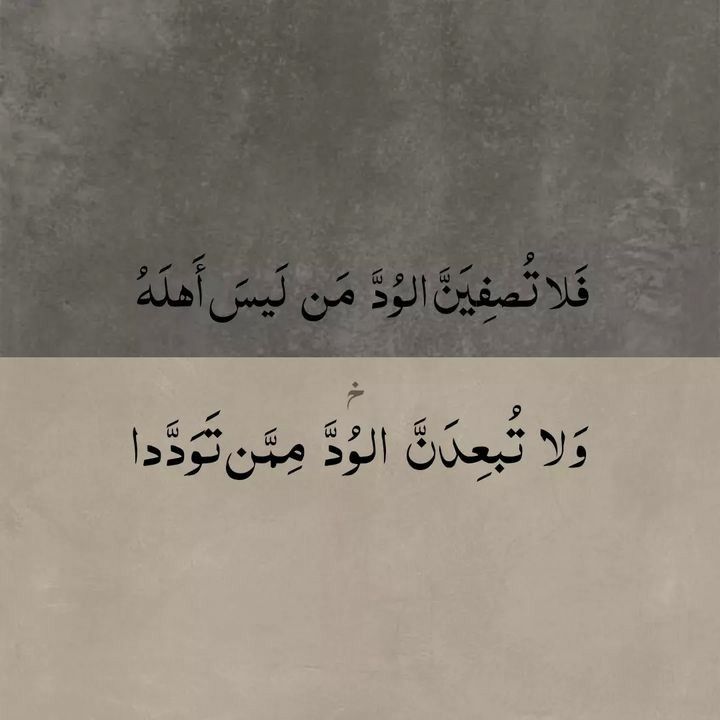 فَلا تُصفِيَنَّ الوُدَّ مَن لَيسَ أَهلَهُ
خ
وَلا تُبعِدَنَّ الوُدَّ مِمَّن تَوَدَّدا